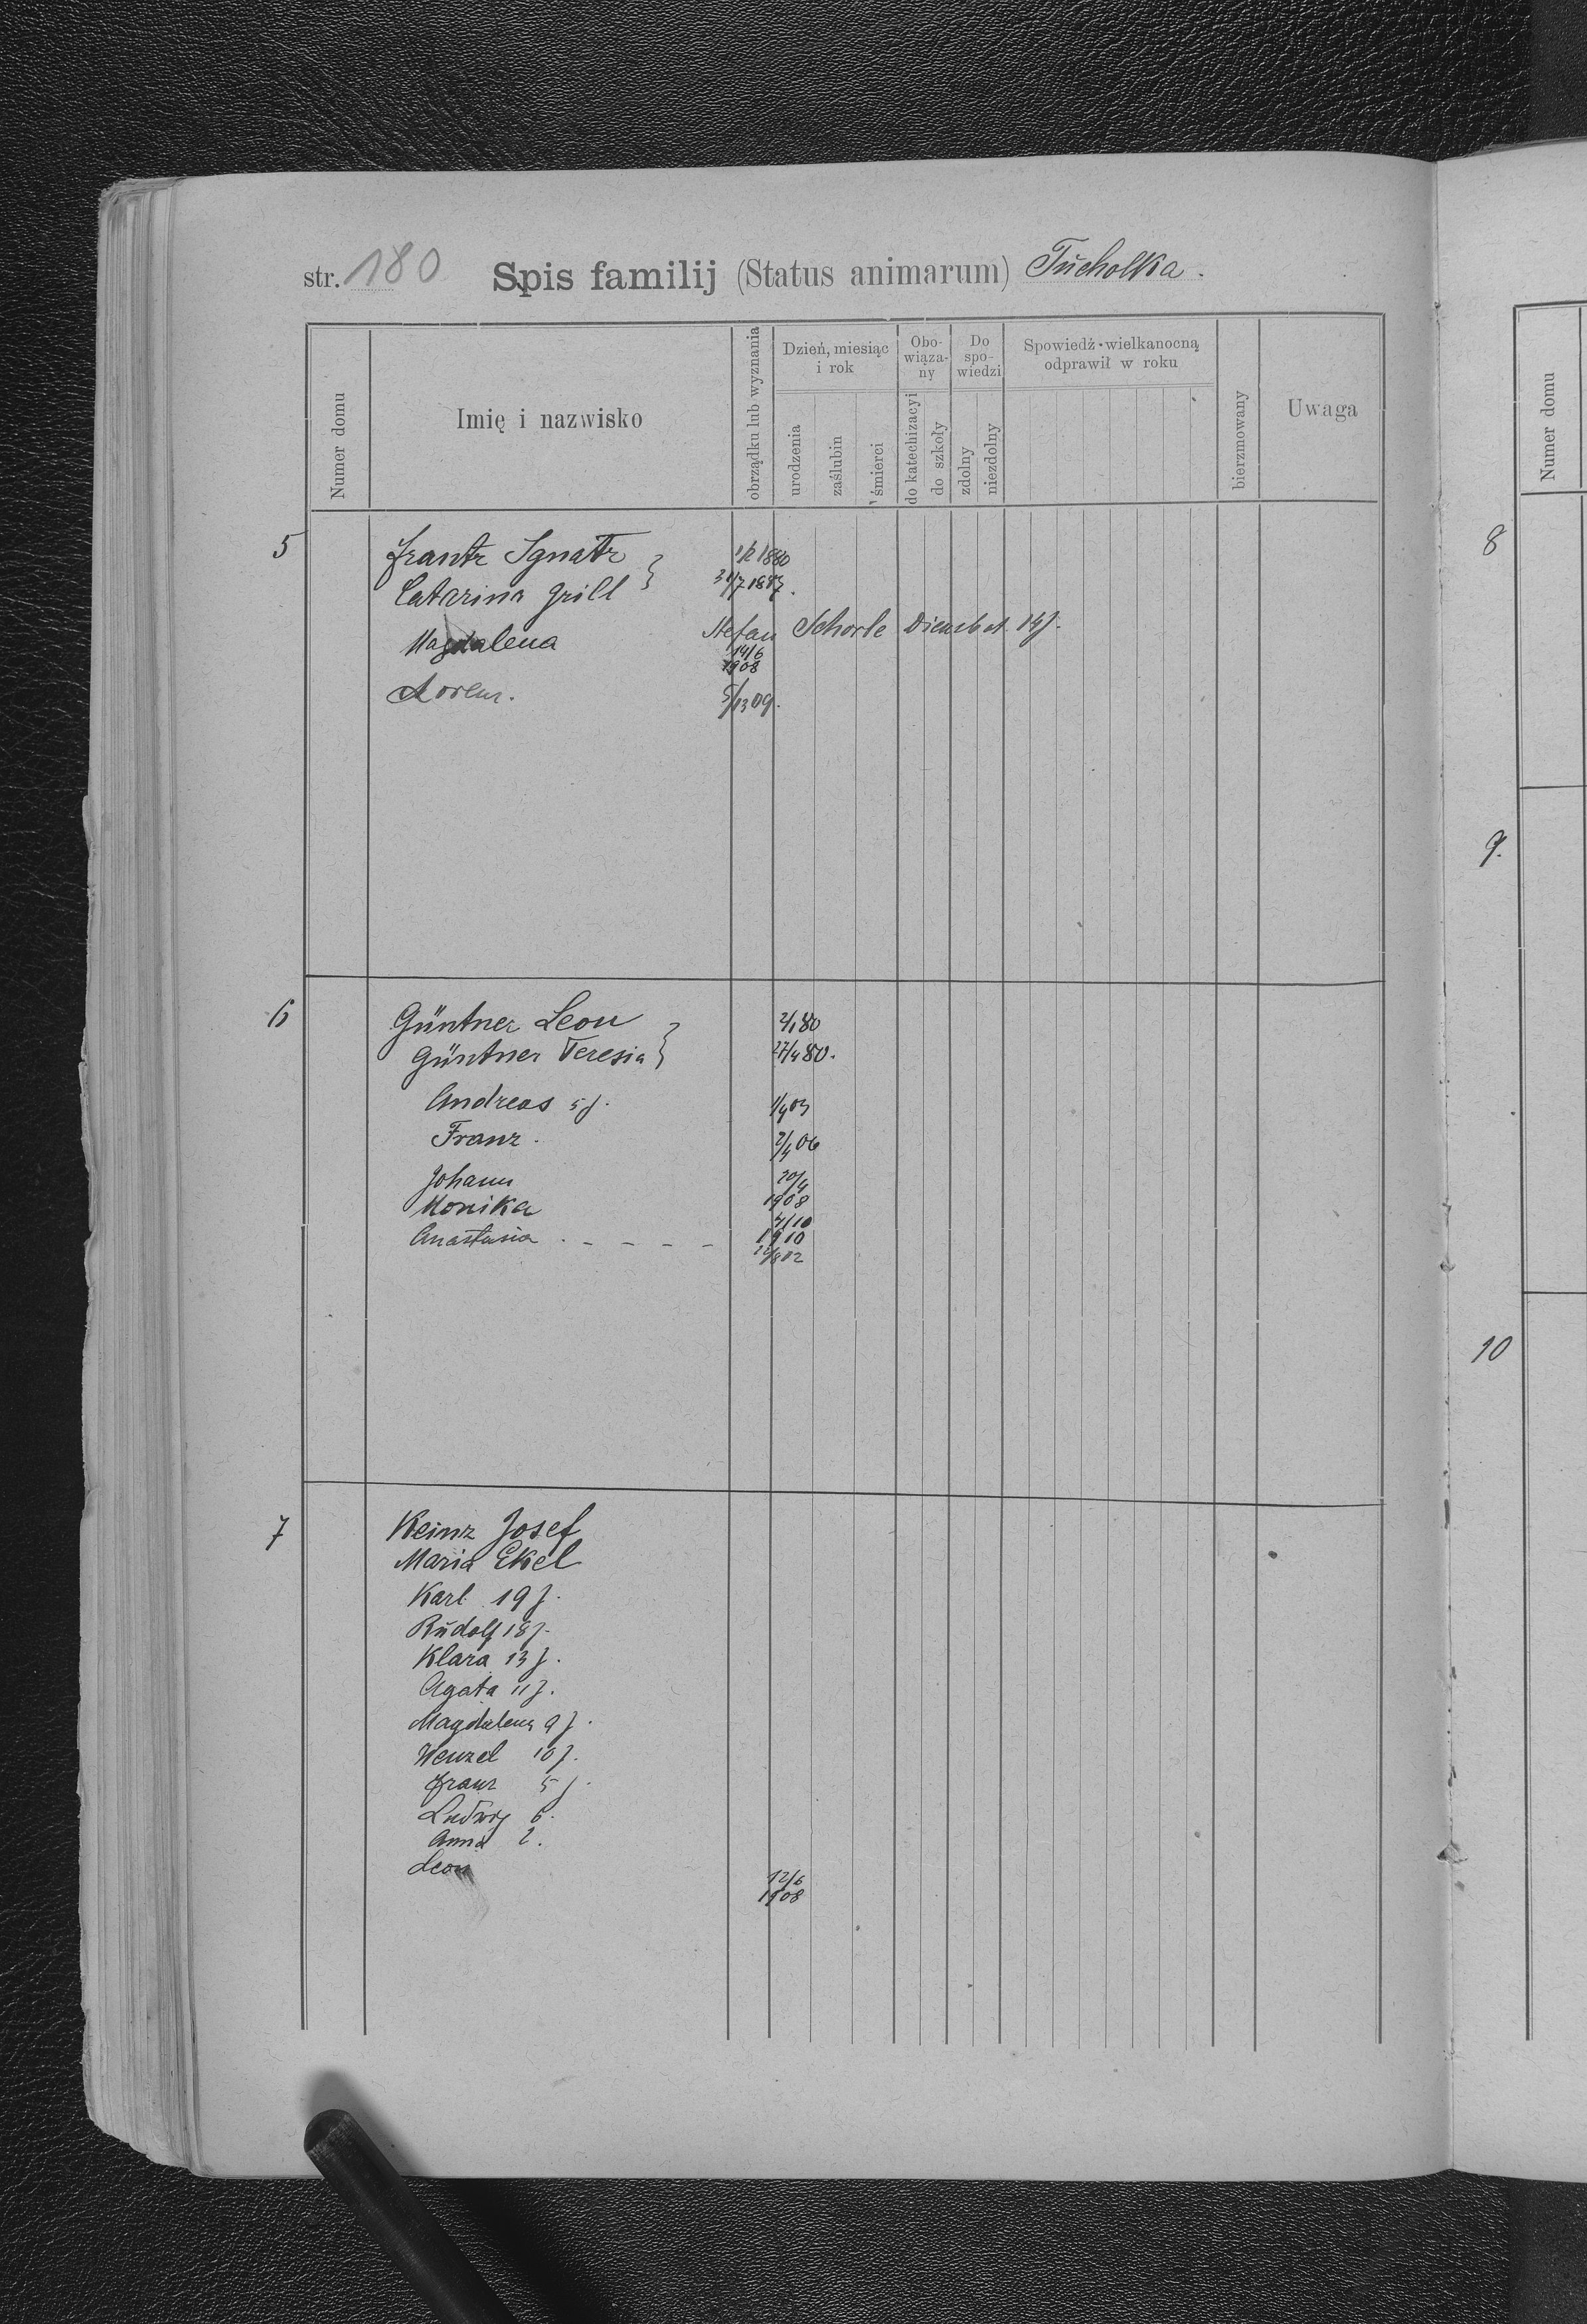 str. 180 Spis familij (Status animarum) Tŭcholka.
Numer domu
Imię i nazwisko
obrządku lub wyznania
Dzień, miesiąc i rok
urodzenia
zaślubin
śmierci
Obowiązany
do katechizacyi
do szkoły
Do spowiedzi
zdolny
niezdolny
Spowiedź wielkanocną odprawił w roku
bierzmowany
Uwaga
5 Frantz Ignatz 1/2 1880
Catarina Grill 31/7 1887.
Stefan Schorle Dienstbot 14 J.
Magdalena 14/6 1908
Lorenz. 09.
6 Güntner Leon 2/1 80
Güntner Teresia 27/4 80.
Andreas 5 J. 1/9 03
Franz. 2/4 06
Johann 20/4 1908
Monika 4/10 1910
Anastasia . - - - - -
7 Keinz Josef
Maria Ekel
Karl 19 J.
Rŭdolf 18 J.
Klara 13 J.
Agata 11 J.
Magdalena 9 J.
Wenzel 10 J.
Franz 5 J.
Ludwig 6.
Anna 2.
Leon 12/6 1908
Numer domu
8
9.
10